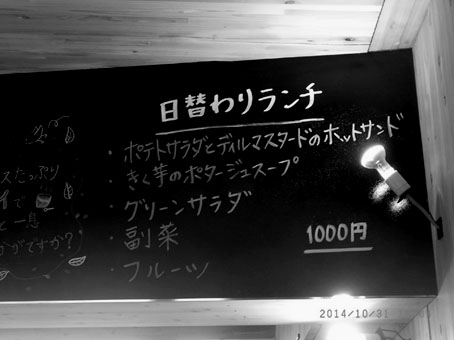 日替わりランチ
・ポテトサラダとディルマスタードのホットサンド
・きく芋のポタージュスープ
・グリーンサラダ
・副菜
・フルーツ
1000円
スたっぷり
イで
と一息
かがですか?
2014/10/31